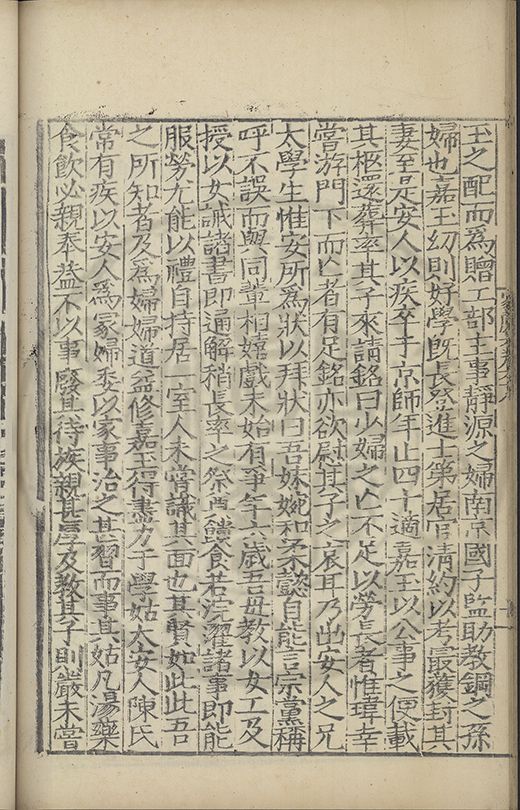 玉之配而為贈工部主事靜源之婦南京國子監助教鋼之孫
婦也嘉玉幼則好學既長登進士第居官清約以考最獲封其
妻至是安人以疾卒于京師年止四十適嘉玉以公事之便載
其柩還葬率其子來請銘曰少婦之亡不足以勞長者惟瑋幸
嘗游門下而亡者有足銘亦欲慰其子之哀耳乃出安人之兄
太學生惟安所為狀以拜狀曰吾妹婉和柔懿自能言宗黨稱
呼不誤而與同輩相嬉戲未始有爭年六歲吾母教以女工及
授以女誡諸書即通解稍長率之祭奠饋食若浣濯諸事即能
服勞尤能以禮自持居一室人未嘗識其面也其賢如此此吾
之所知者及為婦婦道益修嘉玉得盡力于學姑太安人陳氏
常有疾以安人為冢婦悉以家事治之甚習而事其姑凡湯藥
食飲必親奉益不以事廢其待族親甚厚及教其子則嚴未嘗